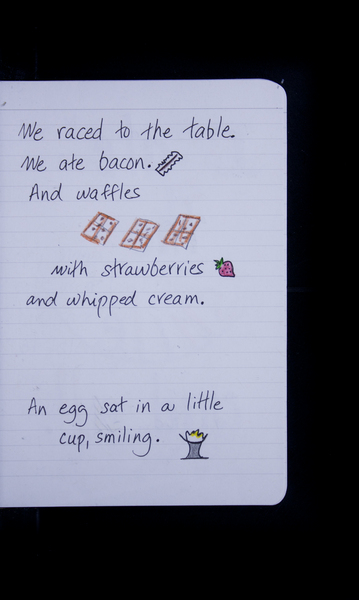 We raced to the table.
We ate bacon.
And waffles
with strawberries
and whipped cream.
An egg sat in a little
cup, smiling.